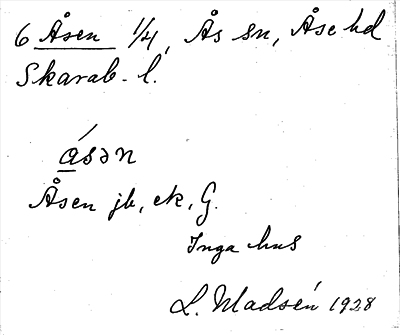 6 Åsen 1/4, Ås sn, Åse hd
Skarab. l.
ásən
Åsen jb, ek, G.
Inga hus
L. Madsén 1928